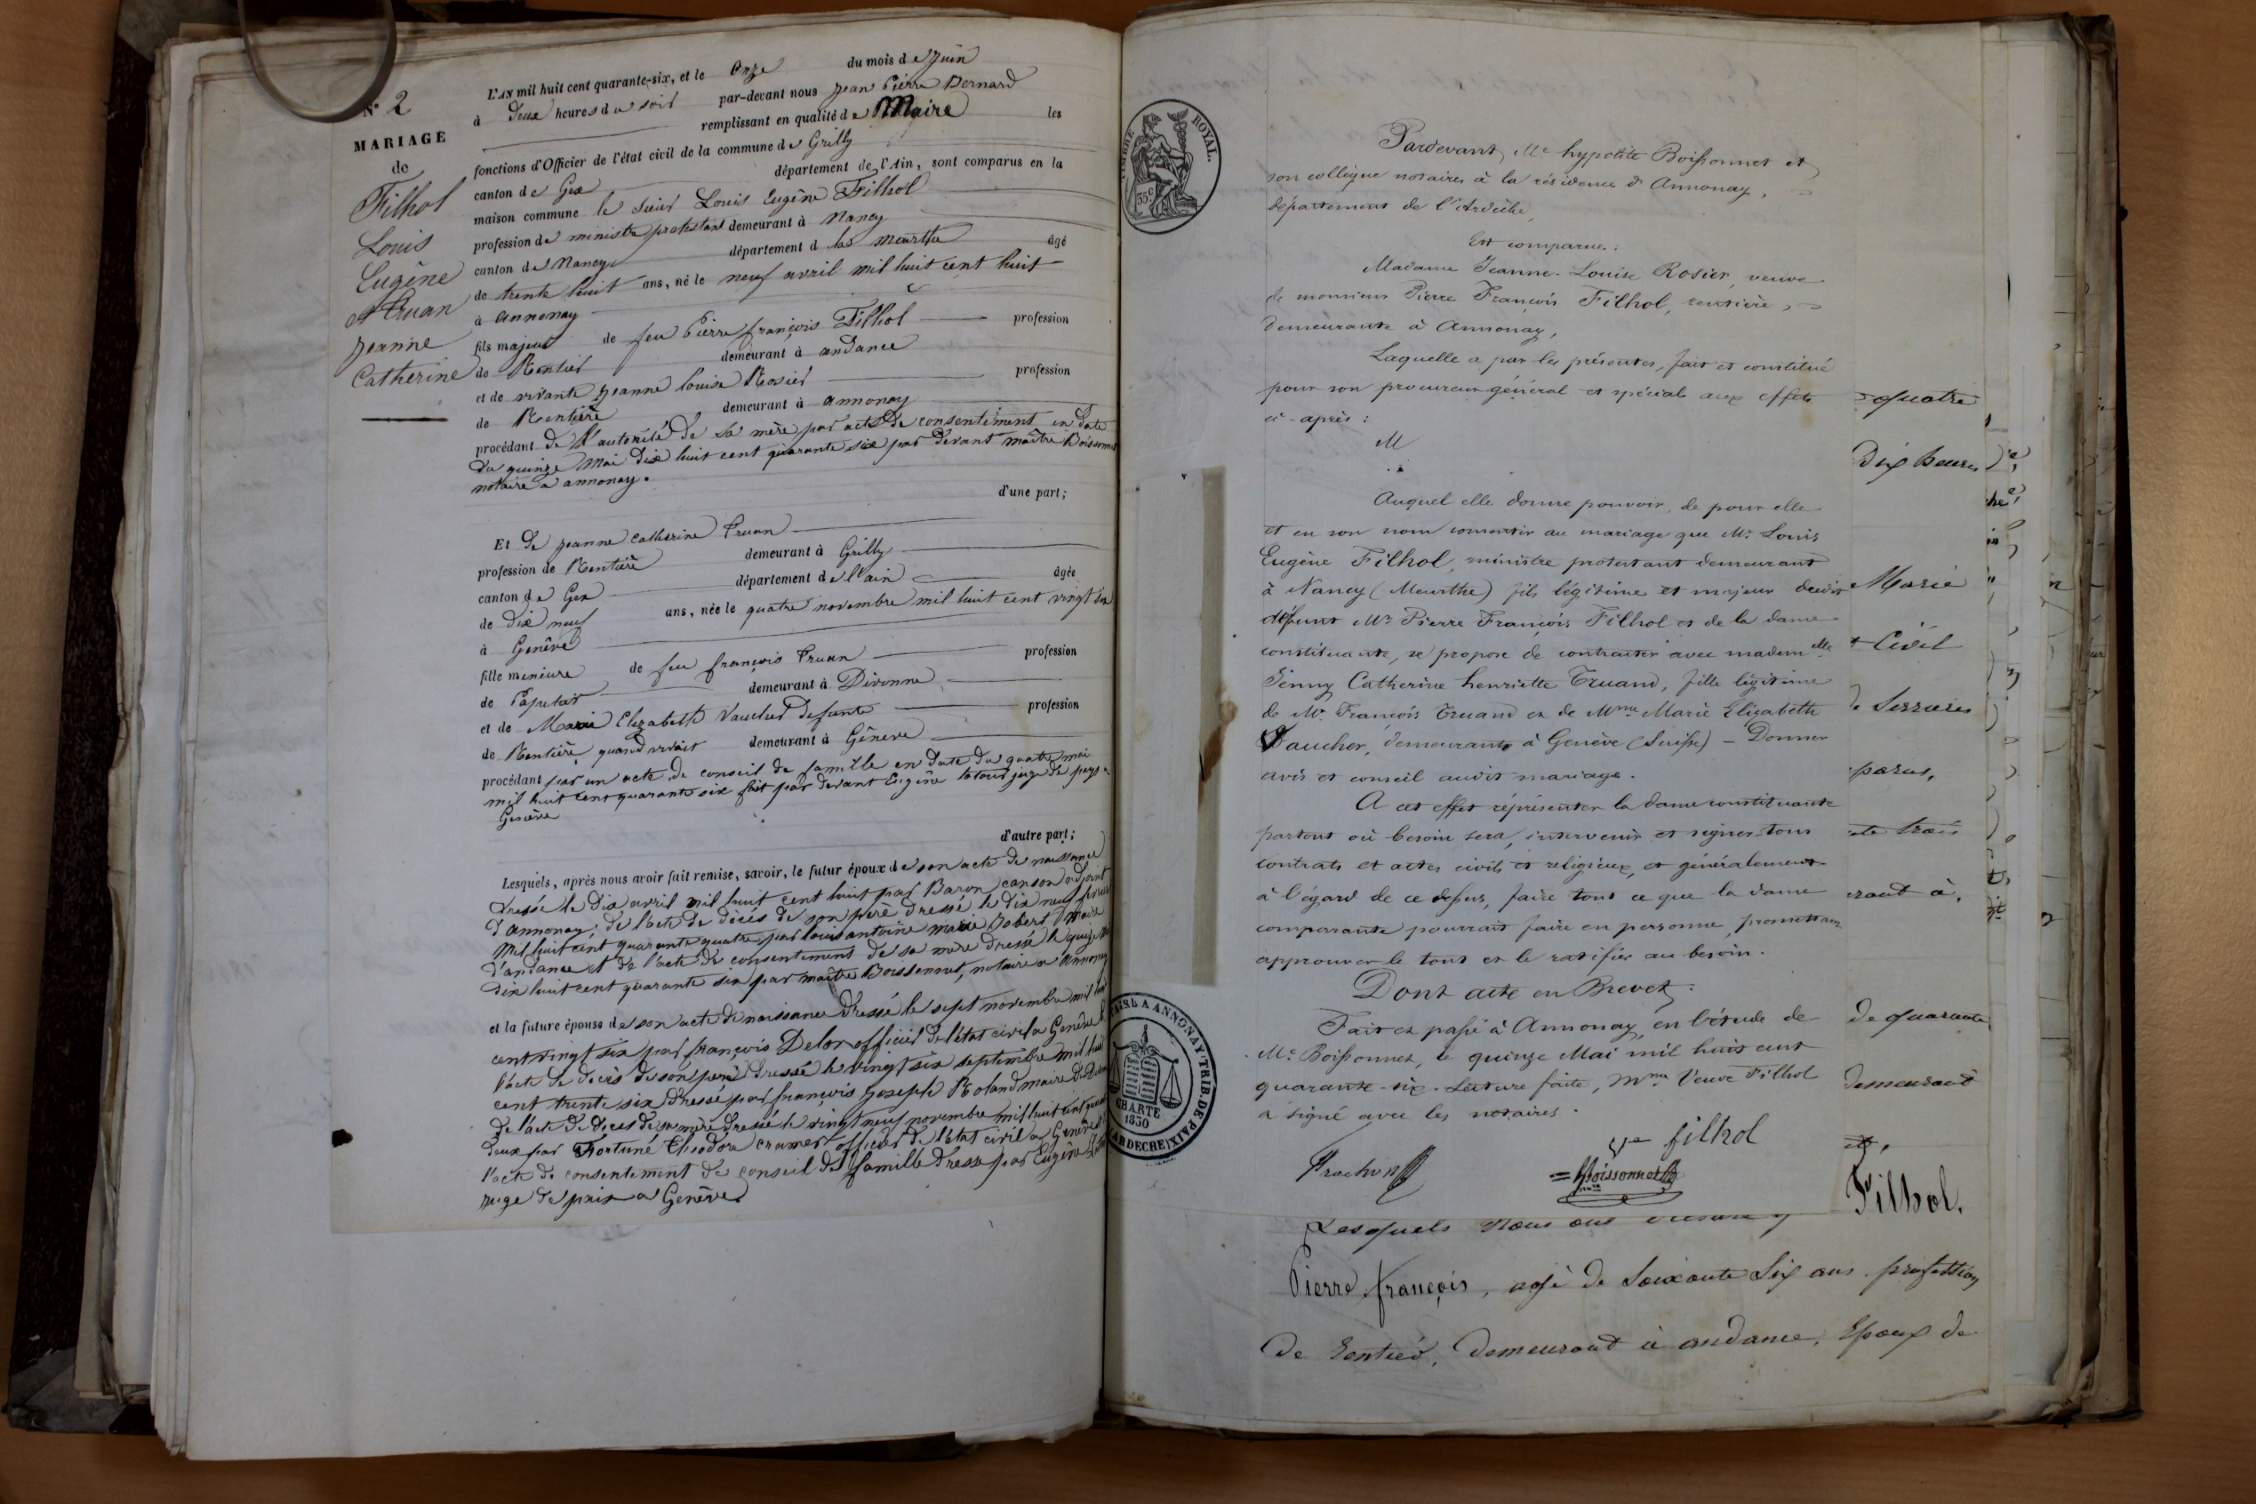 N° 2
MARIAGE
de
Filhol
Louis
Eugène
et Truan
Jeanne
Catherine
L'AN mil huit cent quarante-six, et le onze du mois de Juin
à deux heures du soir par-devant nous Jean Pierre Bernard
remplissant en qualité de Maire les
fonctions d'Officier de l'état civil de la commune de Grilly
canton de Gex département de l'Ain, sont comparus en la
maison commune le sieur Louis Eugène Filhol
profession de ministre protestant demeurant à Nancy
canton de Nancy département de la meurthe âgé
de trente huit ans, né le neuf avril mil huit cent huit
à annonay
fils majeur de feu Pierre françois Filhol profession
de Rentier demeurant à andance
et de vivante Jeanne louise Rosier profession
de Rentière demeurant à annonay
procédant de l'autorité de sa mère par acte de consentement en date
du quinze Mai dix huit cent quarante six par devant maître Boissonnet
notaire à annonay.
d'une part;
Et de Jeanne catherine Truan
profession de Rentière demeurant à Grilly
canton de Gex département de l'ain âgée
de dix neuf ans, née le quatre novembre mil huit cent vingt six
à Genêve
fille mineure de feu françois Truan profession
de Papetier demeurant à Divonne
et de Marie Elizabeth Vaucher defunte profession
de Rentière quand vivait demeurant à Gêneve
procédant par un acte de conseil de famille en date du quatre mai
mil huit cent quarante six fait par devant Eugène juge de paix
Genêve
d'autre part;
Lesquels, après nous avoir fait remise, savoir, le futur époux de son acte de naissance
dressé le dix avril mil huit cent huit par Baron canson adjoint
d'annonay, de l'acte de décès de son père dressé le dix neuf
mil huit cent quarante quatre par louis antoine marie Jobert Maire
d'andance et de l'acte de consentement de sa mère dressé le quinze Mai
dix huit cent quarante six par maître Boissonnet, notaire à Annonay
et la future épouse de son acte de naissance dressé le sept novembre mil huit
cent vingt six par françois Delor officier de l'état civil à Genêve
l'acte de décès de son père dressé le vingt six septembre mil huit
cent trente six dressé par françois Joseph Roland maire de
de l'acte de décès de sa mère dressé le vingt neuf novembre mil huit cent quarante
deux par Fortuné Théodore cramer officier de l'état civil à Genêve
l'acte de consentement de conseil de famille dressé par Eugène
juge de paix à Genêve
TIMBRE ROYAL.
35 c
Pardevant Me hypolite Boissonnet et
son collègue notaires à la résidence d'Annonay,
département de l'Ardèche,
Est comparue:
Madame Jeanne-Louise Rosier, veuve
de monsieur Pierre François Filhol, rentière,
demeurante à Annonay,
Laquelle a par les présentes, fait et constitué
pour son procureur général et spécial aux effets
ci-après:
M
Auquel elle donne pouvoir, de pour elle
et en son nom consentir au mariage que Mr Louis
Eugène Filhol, ministre protestant demeurant
à Nancy (Meurthe) fils légitime et majeur dudit
défunt Mr Pierre François Filhol et de la dame
constituante, se propose de contracter avec mademelle
Jenny Catherine henriette Truand, fille légitime
de Mr François Truand et de Mme Marie Elisabeth
Vaucher, demeurants à Genève (Suisse) - Donner
avis et conseil audit mariage.
A cet effet réprésenter la dame constituante
partout où besoin sera, intervenir et signer tous
contrats et actes civils et religieux, et généralement
à l'égard de ce dessus, faire tout ce que la dame
comparante pourrait faire en personne, promettant
approuver le tout et le ratifier au besoin.
Dont acte en Brevet.
Fait et passé à Annonay, en l'étude de
Me Boissonnet, le quinze Mai mil huit cent
quarante-six. Lecture faite, Mme Veuve Filhol
a signé avec les notaires.
Ve filhol
Boissonnet
A ANNONAY TRIB. DE
CHARTE
1830
ARDECHE
quatre
Dix heures
Marie
Civil
de Serrières
parus,
trois
de quarante
demeurant
Filhol.
Lesquels nous ont
Pierre françois, agé de soixante six ans, profession
de rentier, demeurant à andance, Epoux de